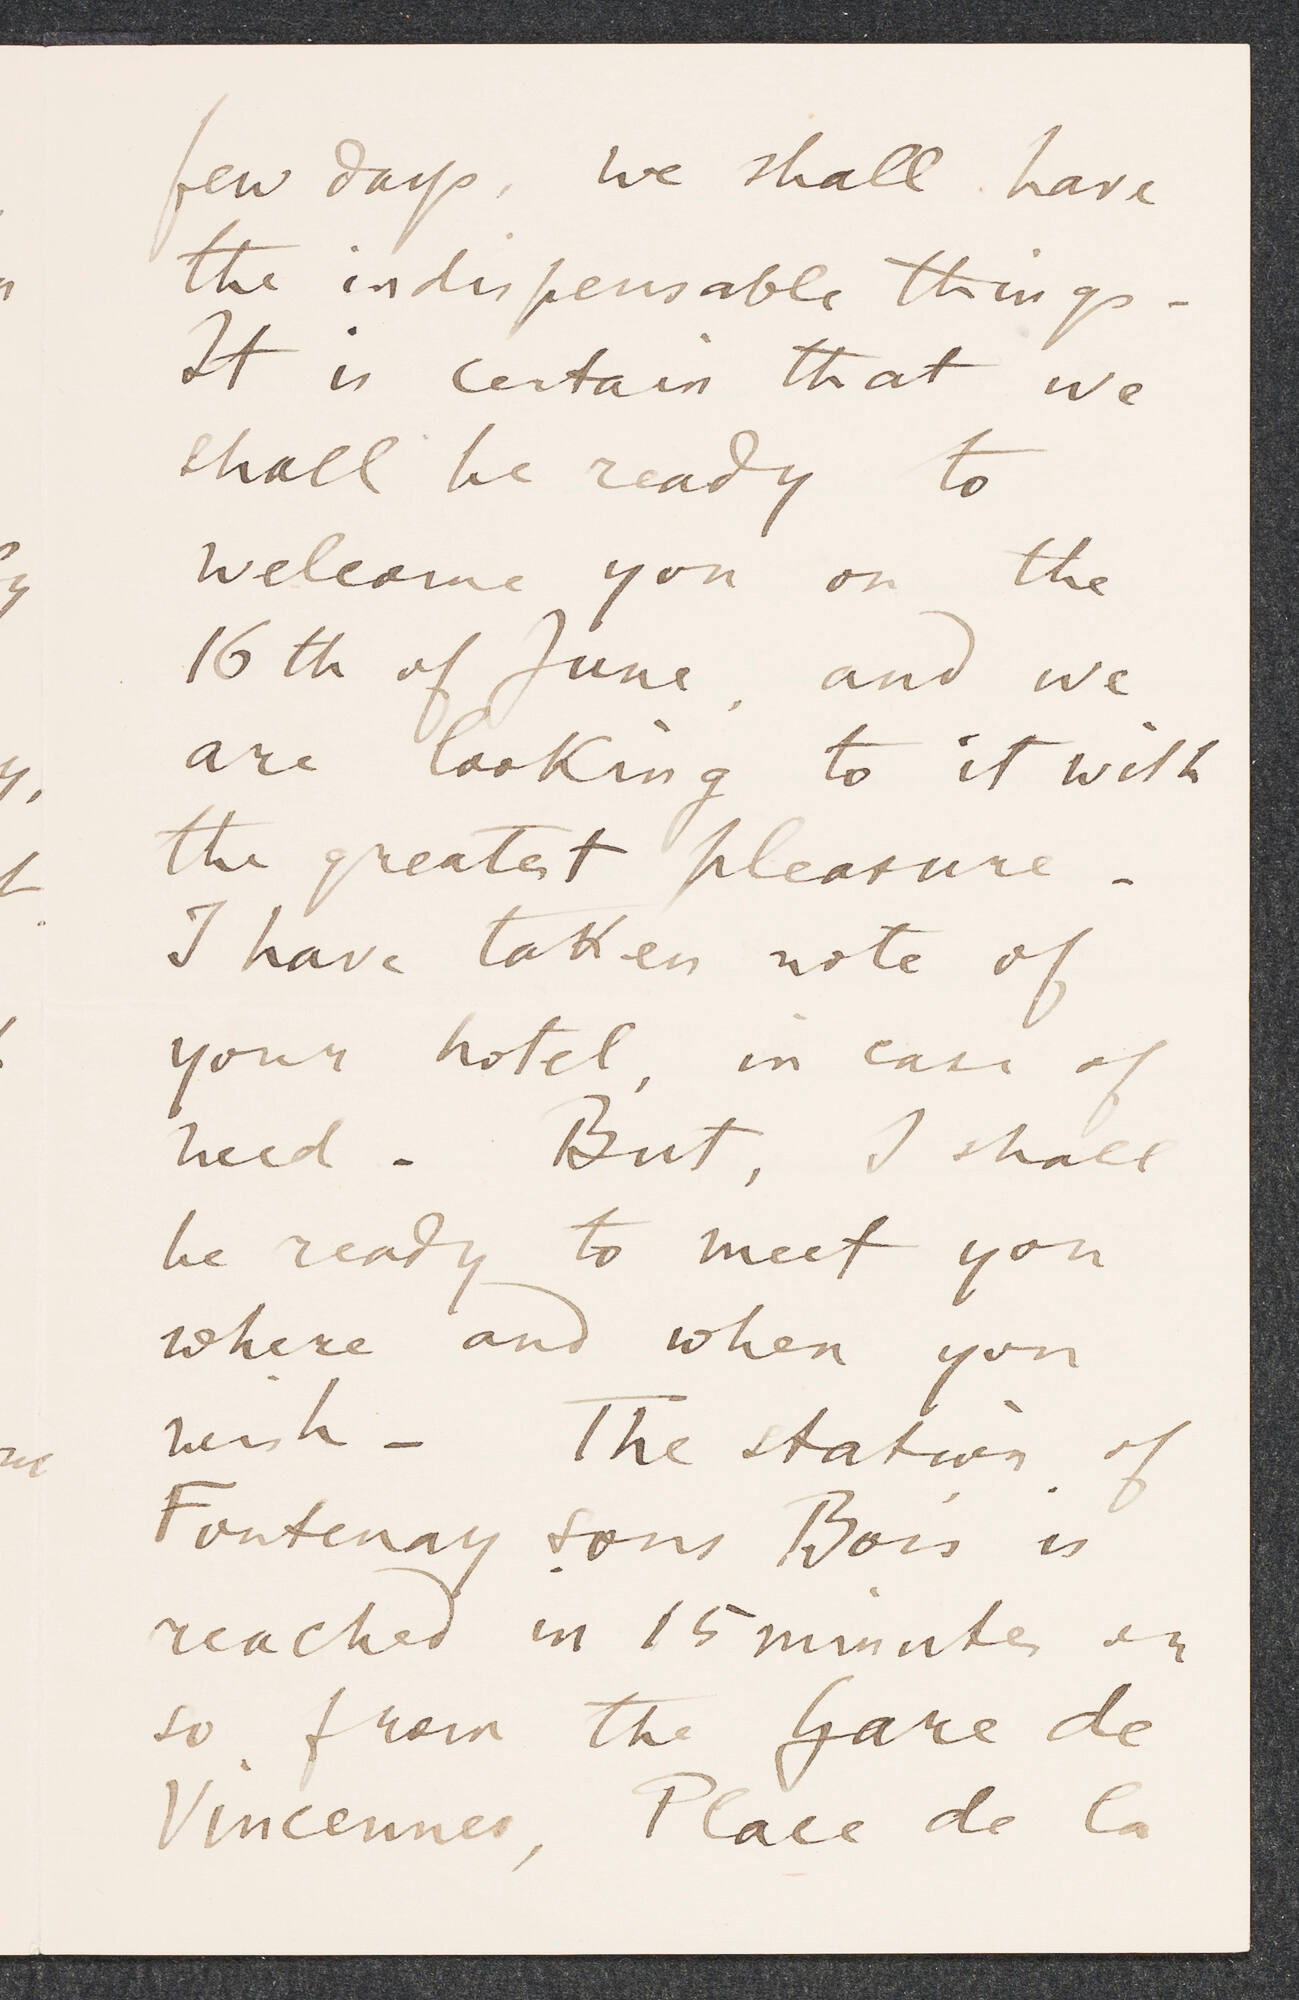 few days, we shall have
the indispensable things -
It is certain that we
shall be ready to
welcome you on the
16th of June, and we
are looking to it with
the greatest pleasure -
I have taken note of
your hotel, in case of
need - But, I shall
be ready to meet you
where and when you
wish - The station of
Fontenay sous Bois is
reached in 15 minutes or
so from the Gare de
Vincennes, Place de la